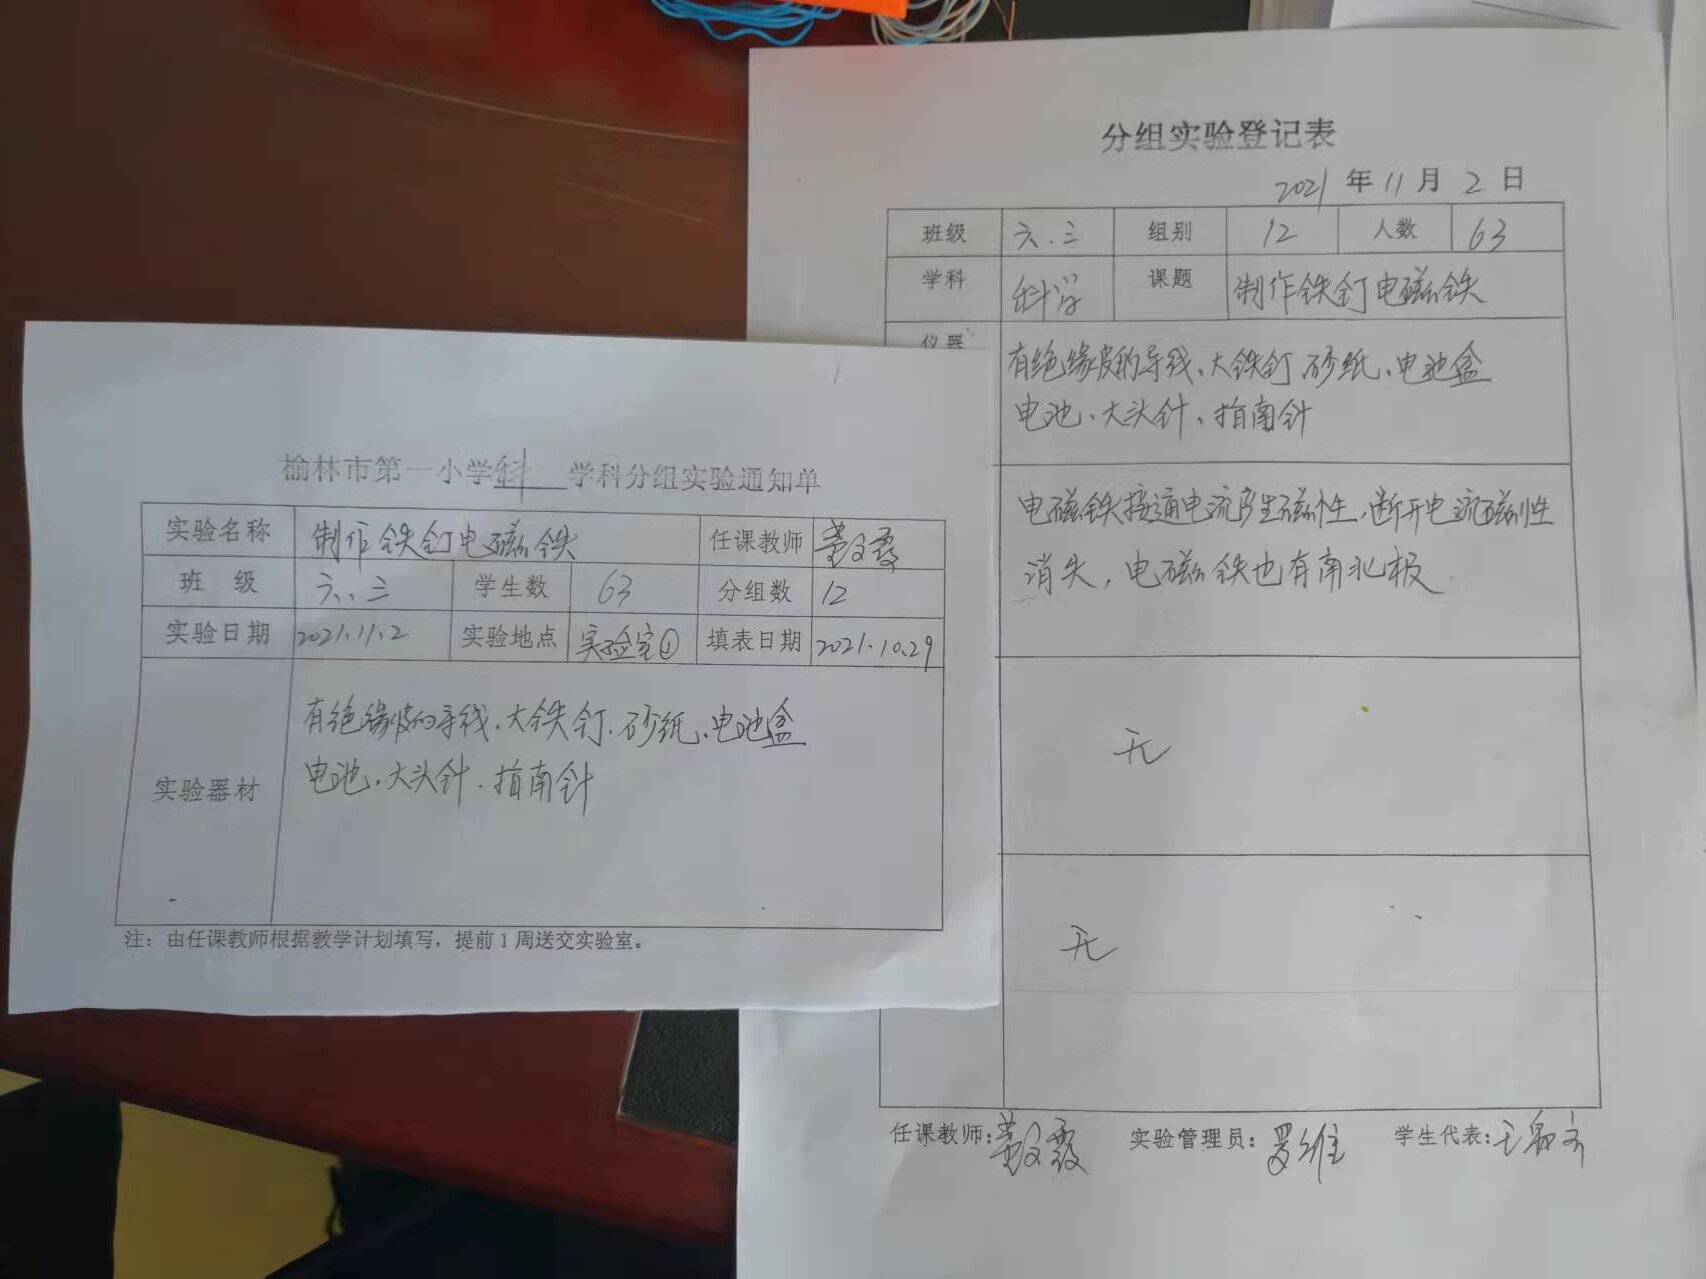 榆林市第一小学科学科分组实验通知单
实验名称 制作铁钉电磁铁 任课教师
班 级 六、三 学生数 63 分组数 12
实验日期 2021.11.2 实验地点 实验室① 填表日期 2021.10.29
实验器材
有绝缘皮的导线、大铁钉、砂纸、电池盒
电池、大头针、指南针
注：由任课教师根据教学计划填写，提前1周送交实验室。
分组实验登记表
2021年11月2日
班级 六.三 组别 12 人数 63
学科 科学 课题 制作铁钉电磁铁
仪器
有绝缘皮的导线、大铁钉 砂纸、电池盒
电池、大头针、指南针
电磁铁接通电流产生磁性，断开电流磁性
消失，电磁铁也有南北极
无
无
任课教师： 实验管理员：罗维 学生代表：